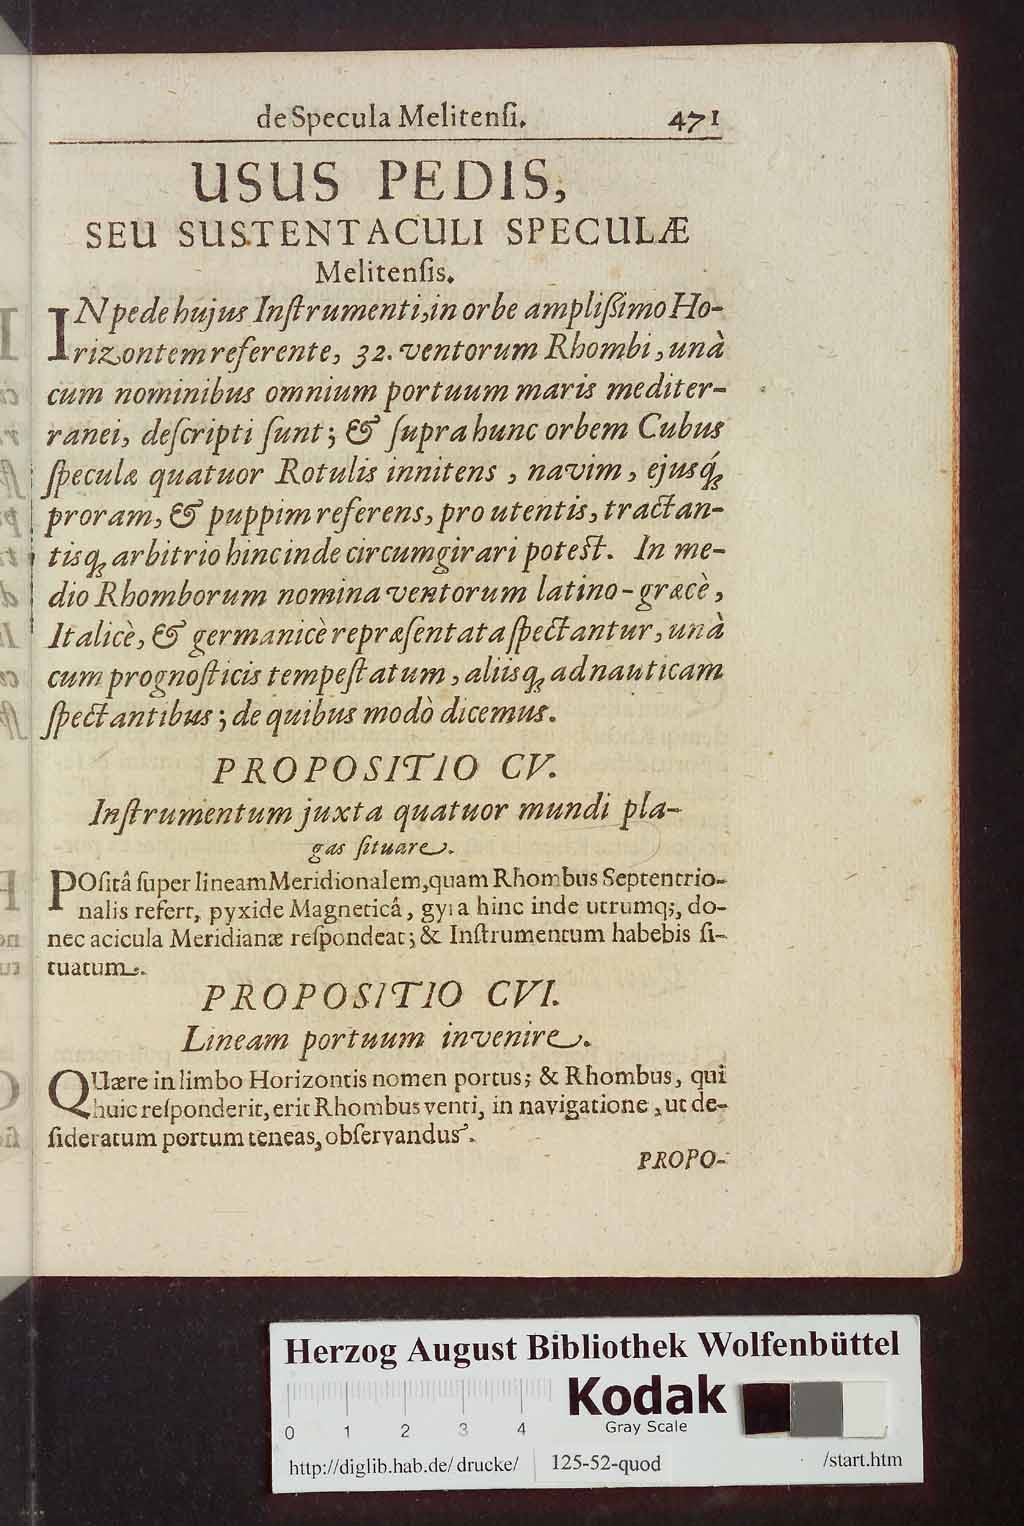 de Specula Melitenſi. 471
USUS PEDIS,
SEU SUSTENTACULI SPECULÆ
Melitenſis.
IN pede hujus Inſtrumenti, in orbe ampliſſimo Ho-
rizontem referente, 32. ventorum Rhombi, unà
cum nominibus omnium portuum maris mediter-
ranei, deſcripti ſunt; & ſupra hunc orbem Cubus
ſpeculæ quatuor Rotulis innitens, navim, ejusq́;
proram, & puppim referens, pro utentis, tractan-
tisq; arbitrio hinc inde circumgirari poteſt. In me-
dio Rhomborum nomina ventorum latino-græcè,
Italicè, & germanicè repræſentata ſpectantur, unà
cum prognoſticis tempeſtatum, aliisq; ad nauticam
ſpectantibus; de quibus modò dicemus.
PROPOSITIO CV.
Inſtrumentum juxta quatuor mundi pla-
gas ſituare.
POſitâ ſuper lineam Meridionalem, quam Rhombus Septentrio-
nalis refert, pyxide Magneticâ, gyra hinc inde utrumq;, do-
nec acicula Meridianæ reſpondeat; & Inſtrumentum habebis ſi-
tuatum.
PROPOSITIO CVI.
Lineam portuum invenire.
QUære in limbo Horizontis nomen portus; & Rhombus, qui
huic reſponderit, erit Rhombus venti, in navigatione, ut de-
ſideratum portum teneas, obſervandus.
PROPO-
Herzog August Bibliothek Wolfenbüttel
Kodak
Gray Scale
0 1 2 3 4
http://diglib.hab.de/drucke/ 125-52-quod /start.htm